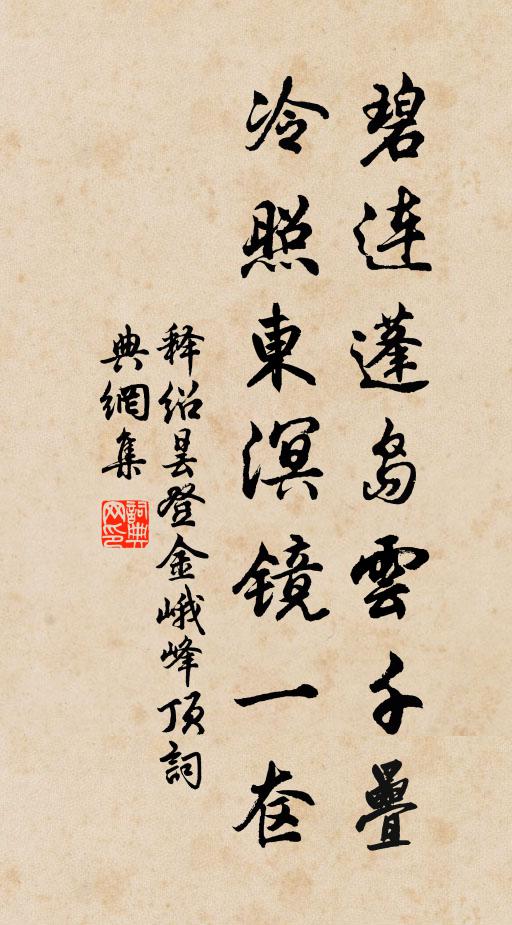 碧连蓬岛雲千疊
冷照東溟镜一奁
释绍昙登金峨峰顶詞
典網集
詞典网印